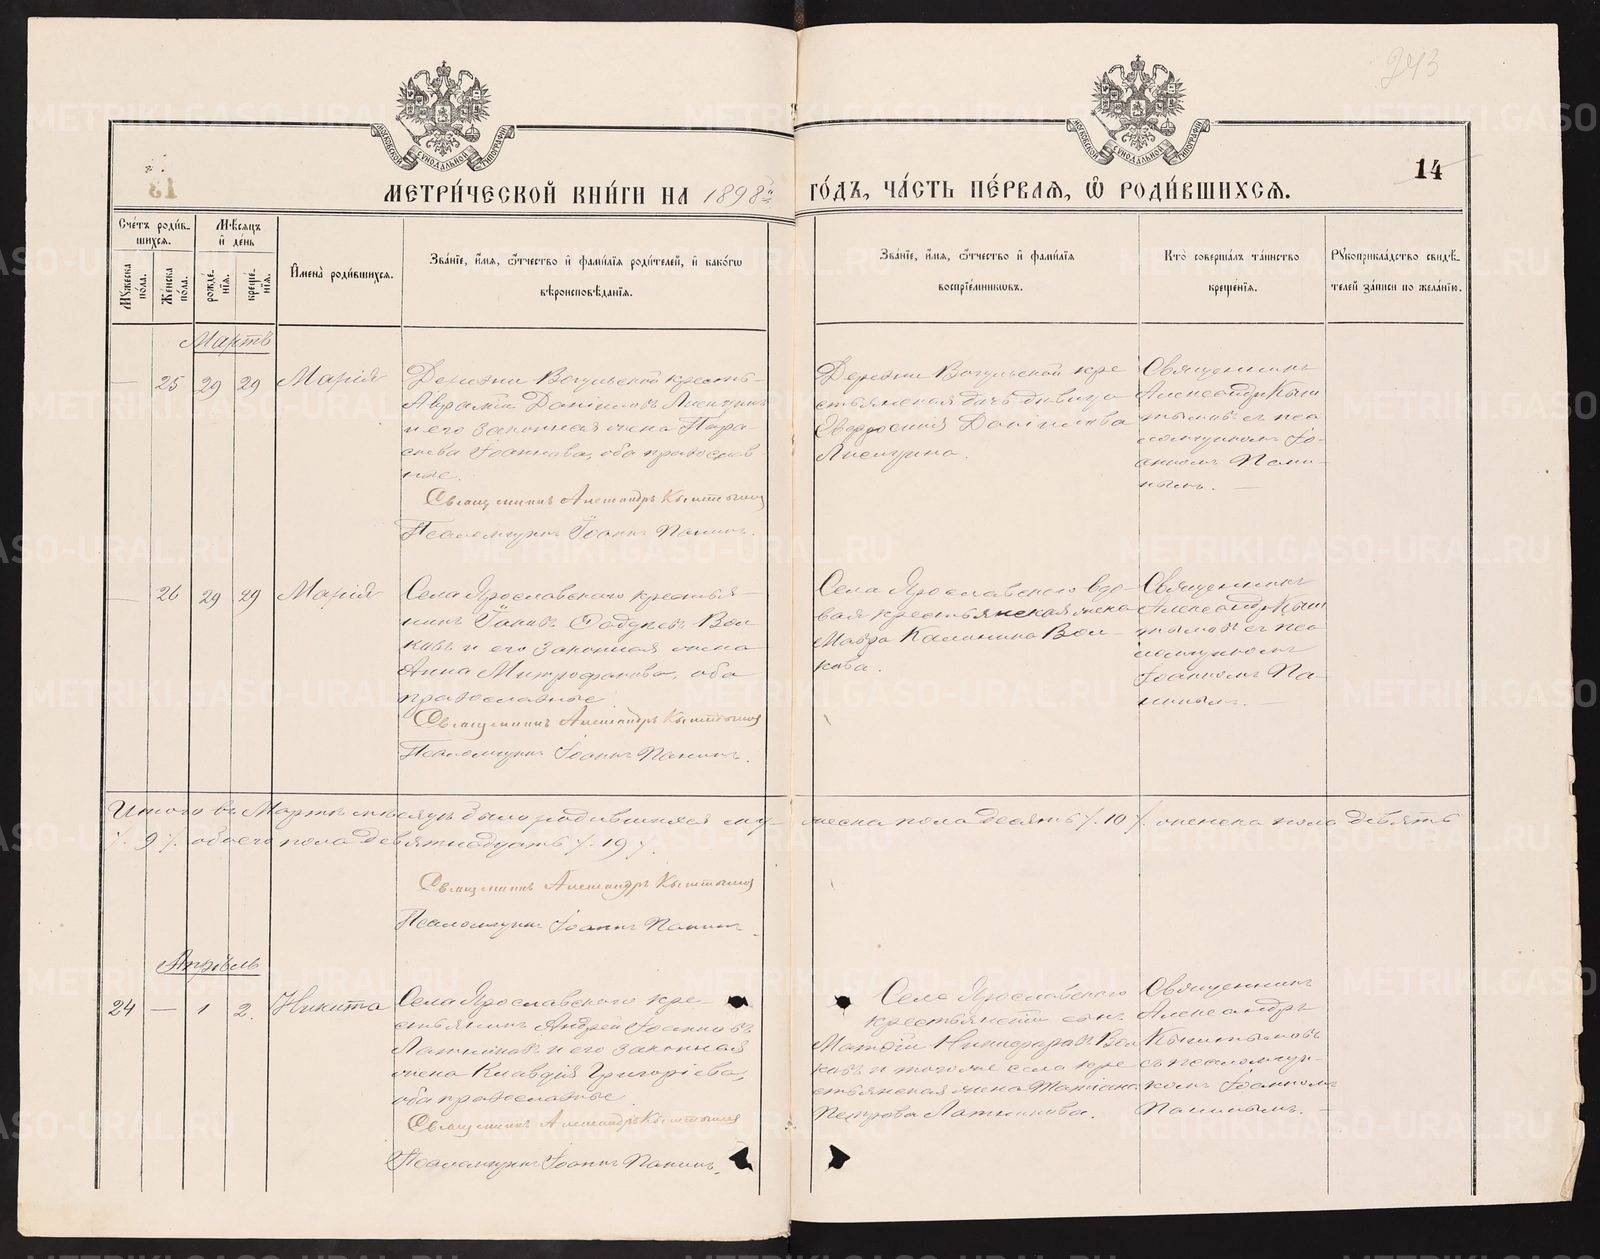 243
14
МОСКОВСКОЙ СѴНОДАЛЬНОЙ ТИПОГРАФІИ
МОСКОВСКОЙ СѴНОДАЛЬНОЙ ТИПОГРАФІИ
МЕТРИ́ЧЕСКОЙ КНИ́ГИ НА 1898й ГО́ДЪ, ЧА́СТЬ ПЕ́РВАѦ, Ѡ҆ РОДИ́ВШИХСѦ.
Сче́тъ роди́в-
шихсѧ.
Мꙋжеска по́ла.
Же́нска по́ла.
Мѣ́сѧцъ
и҆ де́нь
рожде́-
нїѧ.
креще́-
нїѧ.
И҆мена̀ роди́вшихсѧ.
Зва́нїе, и҆́мѧ, ѻ҆́тчество и҆ фами́лїѧ роди́телей, и҆ како́гѡ
вѣроисповѣ́данїѧ.
Зва́нїе, и҆́мѧ, ѻ҆́тчество и҆ фами́лїѧ
воспрїе́мникѡвъ.
Кто̀ соверша́лъ та́инство
креще́нїѧ.
Рꙋкоприкла́дство свидѣ́-
телей за́писи по жела́нїю.
Мартъ
— 25 29 29 Марія
Деревни Вогульской кресть-
Авраамій Даніиловъ Лисицинъ
и его законная жена Пара-
скева Іоаннова, оба православ
ные.
Священникъ Александръ Кыштымовъ
Псаломщикъ Іоаннъ Панинъ.
Деревни Вогульской кре
стьянская дочь дѣвица
Евфросинія Даніилова
Лисицина.
Священникъ
Александръ Кыш
тымовъ съ пса
ломщикомъ Іо-
анномъ Пани-
нымъ. —
— 26 29 29 Марія
Села Ярославскаго крестья-
нинъ Іаковъ Вол
ковъ и его законная жена
Анна Митрофанова, оба
православные
Священникъ Александръ Кыштымовъ
Псаломщикъ Іоаннъ Панинъ.
Села Ярославскаго вдо-
вая крестьянская жена
Мавра Калинина Вол-
кова.
Священникъ
Александръ Кыш
тымовъ съ пса
ломщикомъ
Іоанномъ Па-
нинымъ. —
Итого въ Мартѣ мѣсяцѣ было родившихся му- жеска пола десять /. 10 /. женска пола девять
/. 9 /. обоего пола девятнадцать /. 19 /.
Священникъ Александръ Кыштымовъ
Псаломщикъ Іоаннъ Панинъ.
Апрѣль
24 — 1 2. Никита
Села Ярославскаго кре-
стьянинъ Андрей Іоанновъ
Латниковъ и его законная
жена Клавдія Григоріева,
оба православные.
Священникъ Александръ Кыштымовъ
Псаломщикъ Іоаннъ Панинъ.
Села Ярославскаго
крестьянскій сынъ
Матѳій Никифоровъ Вол
ковъ и того же села кре
стьянская жена Татіана
Петрова Латникова.
Священникъ
Александръ
Кыштымовъ
съ псаломщи-
комъ Іоанномъ
Панинымъ. —
METRIKI.GASO-URAL.RU